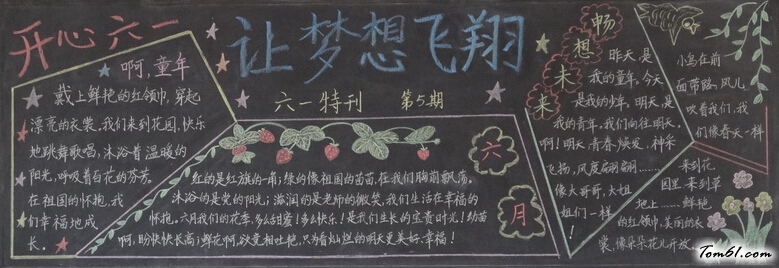 开心六一
让梦想飞翔
六一特刊 第5期
啊,童年
戴上鲜艳的红领巾,穿起
漂亮的衣裳,我们来到花园,快乐
地跳舞歌唱,沐浴着温暖的
阳光,呼吸着百花的芬芳。
在祖国的怀抱,我
们幸福地成
长。
六
月
红的是红旗的一角;绿的像祖国的苗苗,在我们胸前飘荡。
沐浴的是党的阳光;滋润的是老师的微笑,我们生活在幸福的
怀抱。六月我们的花季,多么甜蜜!多么快乐!是我们生长的宝贵时光!幼苗
啊,盼快快长高;鲜花啊,欲竞相吐艳,只为着灿烂的明天更美好、幸福!
畅想未来
昨天,是
我的童年,今天
是我的少年,明天,是
我的青年,我们向往明天,
啊!明天,青春焕发,神采
飞扬,风度翩翩……
像大哥哥,大姐
姐们一样
!
小鸟在前
面带路,风儿
吹着我们,我
们像春天一样
来到花
园里,来到草
地上……鲜艳
的红领巾,美丽的衣
裳,像朵朵花儿开放。
Tom61.com